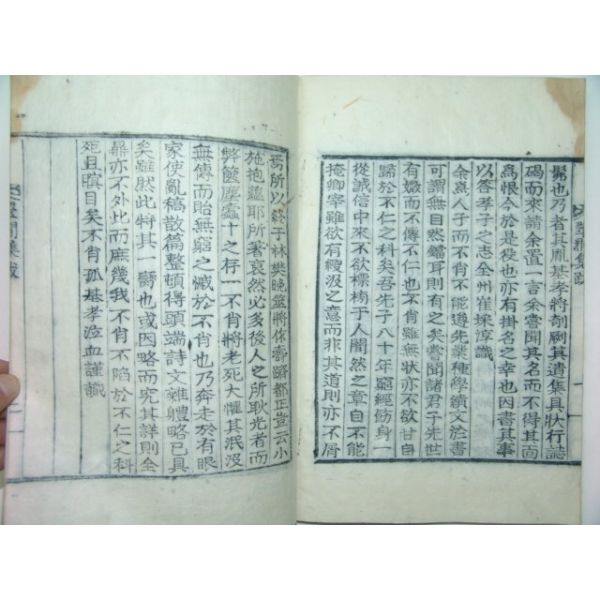 臠也乃者其胤基孝將剞劂其遺集具狀行誌
碣而來請余置一言余嘗聞其名而不得其面
爲恨今於是役也亦有掛名之幸也因書其事
以答孝子之志全州崔秉淳識
余爲人子而不肖不能遵先業種學績文於書
可謂無目然鐺耳則有之矣嘗聞諸君子先世
有嫩而不傳不仁也不肖雖無狀亦不欲甘自
歸於不仁之科矣吾先子八十年窮經飭身一
從誠信中來不欲標榜于人闇然之章自不能
掩卿宰雖欲有縵汲之意而非其道則亦不屑
焉所以終于林樊晩筮將作齋躋都正豈云小
施抱蘊耶所著裒然必多後人之所耿光者而
弊篋塵蠹十之存一不肖將老死大懼其泯沒
無傳而貽無窮之慽於不肖也乃奔走於有眼
家使亂稿散篇整頓得頭端詩文雜體略已具
矣雖然此特其一臠也或因略而究其詳則全
鼎亦不外此而庶幾我不肖不陷於不仁之科
死且瞑目矣不肖孤基孝泣血謹識